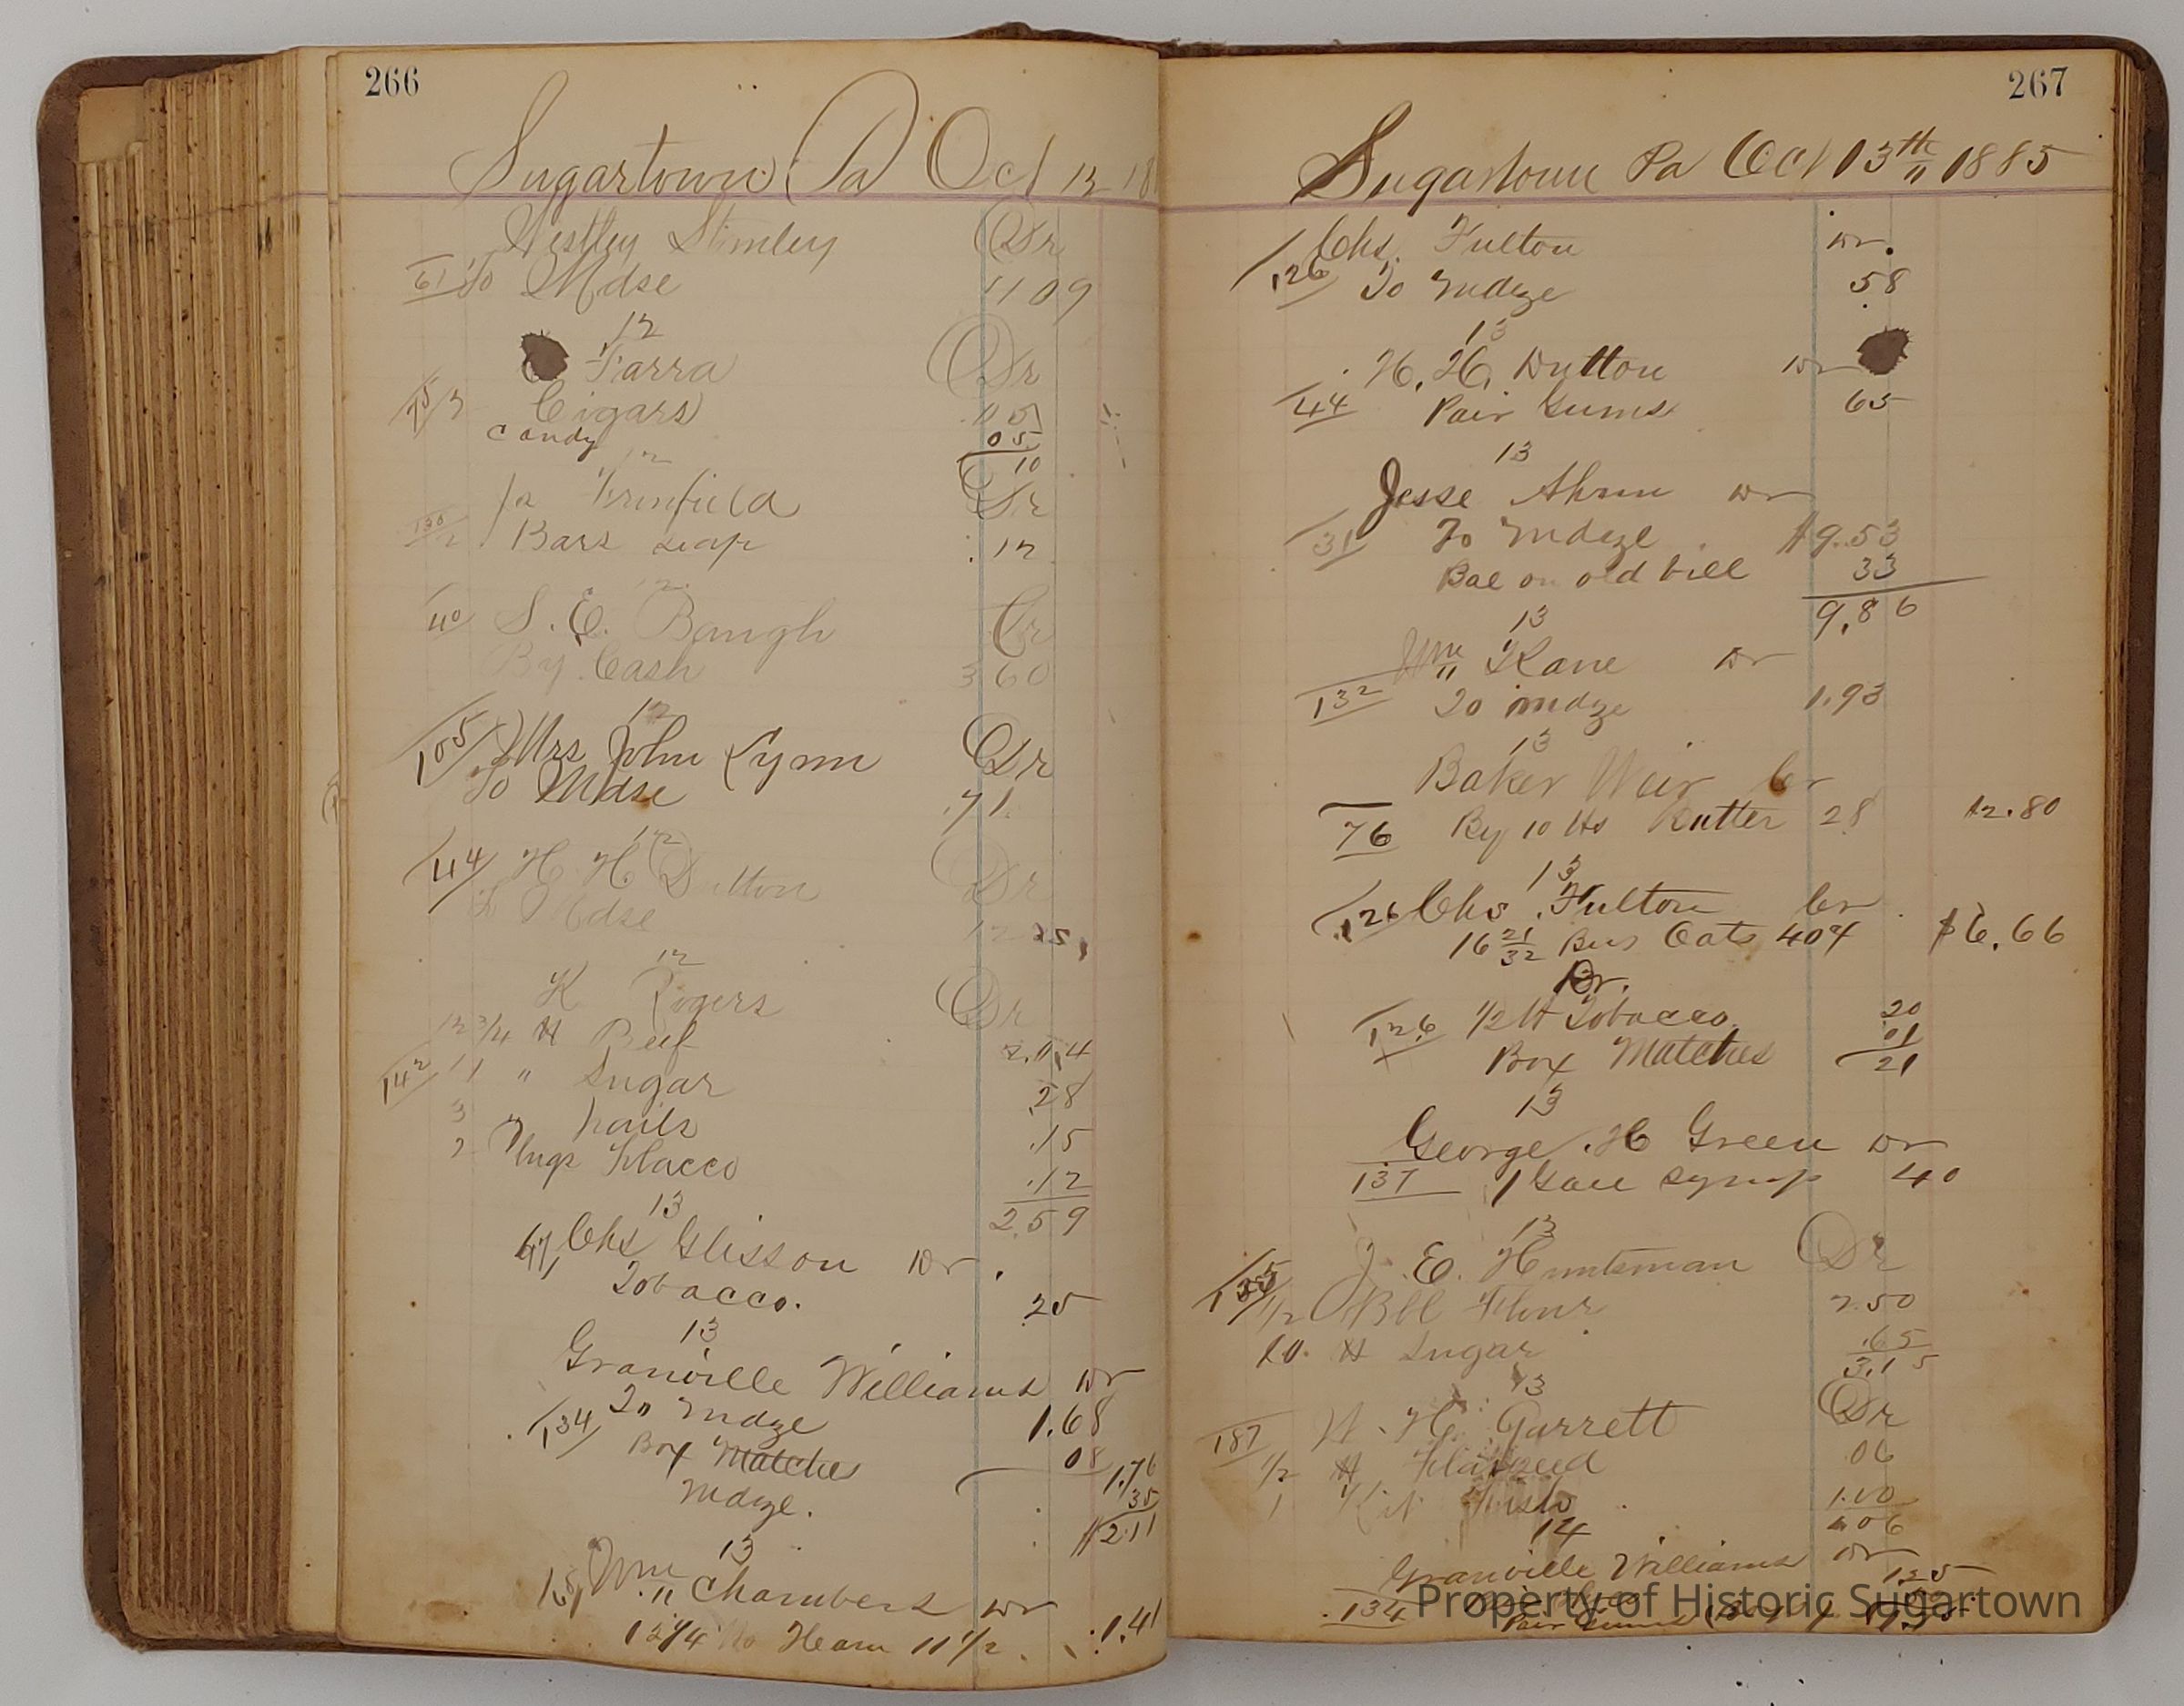 266
Sugartown Pa Oct 12 18
Westley Stimley Dr
61 To Mdse 11 09
12
Farra Dr
75 2 Cigars 05
Candy 05
10
12
Dr
130 2 Bars soap .12
12
40 S. E. Baugh Cr
By Cash 3 60
12
105 Mrs John Lynn Dr
To Mdse .71
12
44 H. H. Dutton Dr
To Mdse 25
12
K Rogers Dr
12 3/4 lb Beef 2.04
142 " Sugar .28
3 " nails .15
2 Plugs tobacco .12
2.59
13
67 Chs Glisson Dr
Tobacco. 25
13
Granville Williams Dr
134 To mdze 1.68
Box Matches 08
1.76
Mdze. 35
$2.11
13
Wm Chambers Dr
12 1/4 lb Ham 11 1/2 1.41
267
Sugartown Pa Oct 13th 1885
Chs. Fulton Dr.
126 To mdze 58
13
H. H. Dutton Dr
44 Pair Gums 65
13
Jesse Dr
31 To mdze $9.53
Bal on old bill 33
9.86
13
Wm Kane Dr
132 To mdze 1.93
13
Baker Weir Cr
76 By 10 lbs Butter 28 $2.80
13
126 Chs. Fulton Cr
16 21/32 Bus Oats 40¢ $6.66
Dr.
126 1/2 lb Tobacco 20
Box Matches 01
21
13
George H Green Dr
137 1 Gall Syrup 40
13
J. E. Huntsman Dr
135 1/2 Bbl Flour 2.50
10 lb Sugar .65
3.15
13
Garrett Dr
187 1/2 lb Flaxseed 06
1 Kit Fish 1.00
1.06
14
Granville Williams Dr
134 1.25
Pair Gums
Property of Historic Sugartown